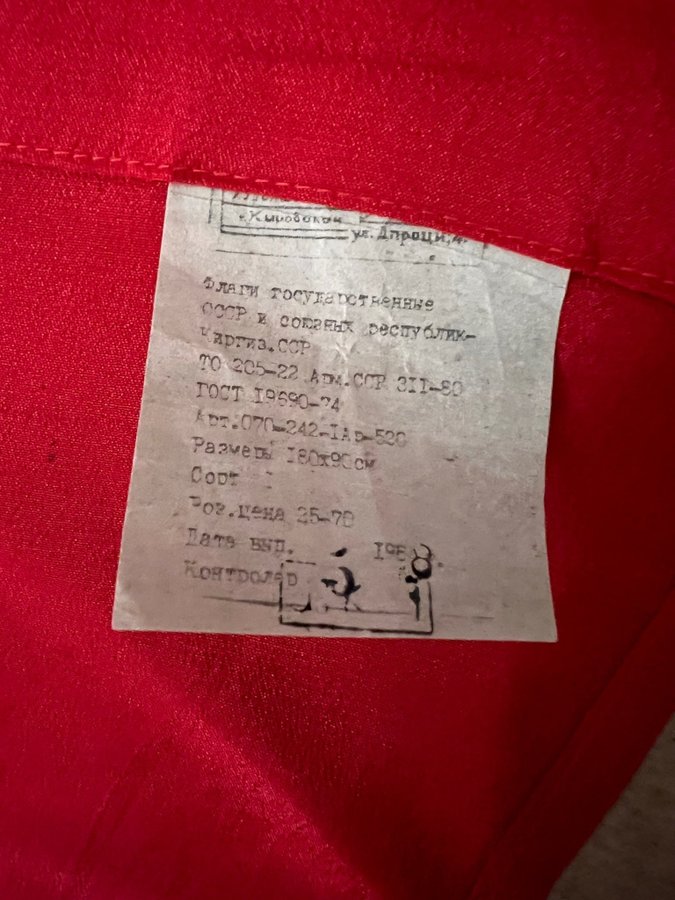 г. Кировокан
ул. Апраци, 4.
Флаги государственные
СССР и союзных республик-
Киргиз.ССР
ТО 205-22 Арм.ССР 311-80
ГОСТ 19690-74
Арт.070-242-1Ар-520
Размеры 180х90см
Сорт
Роз.цена 25-70
Дата вып. 198 8.
Контролер